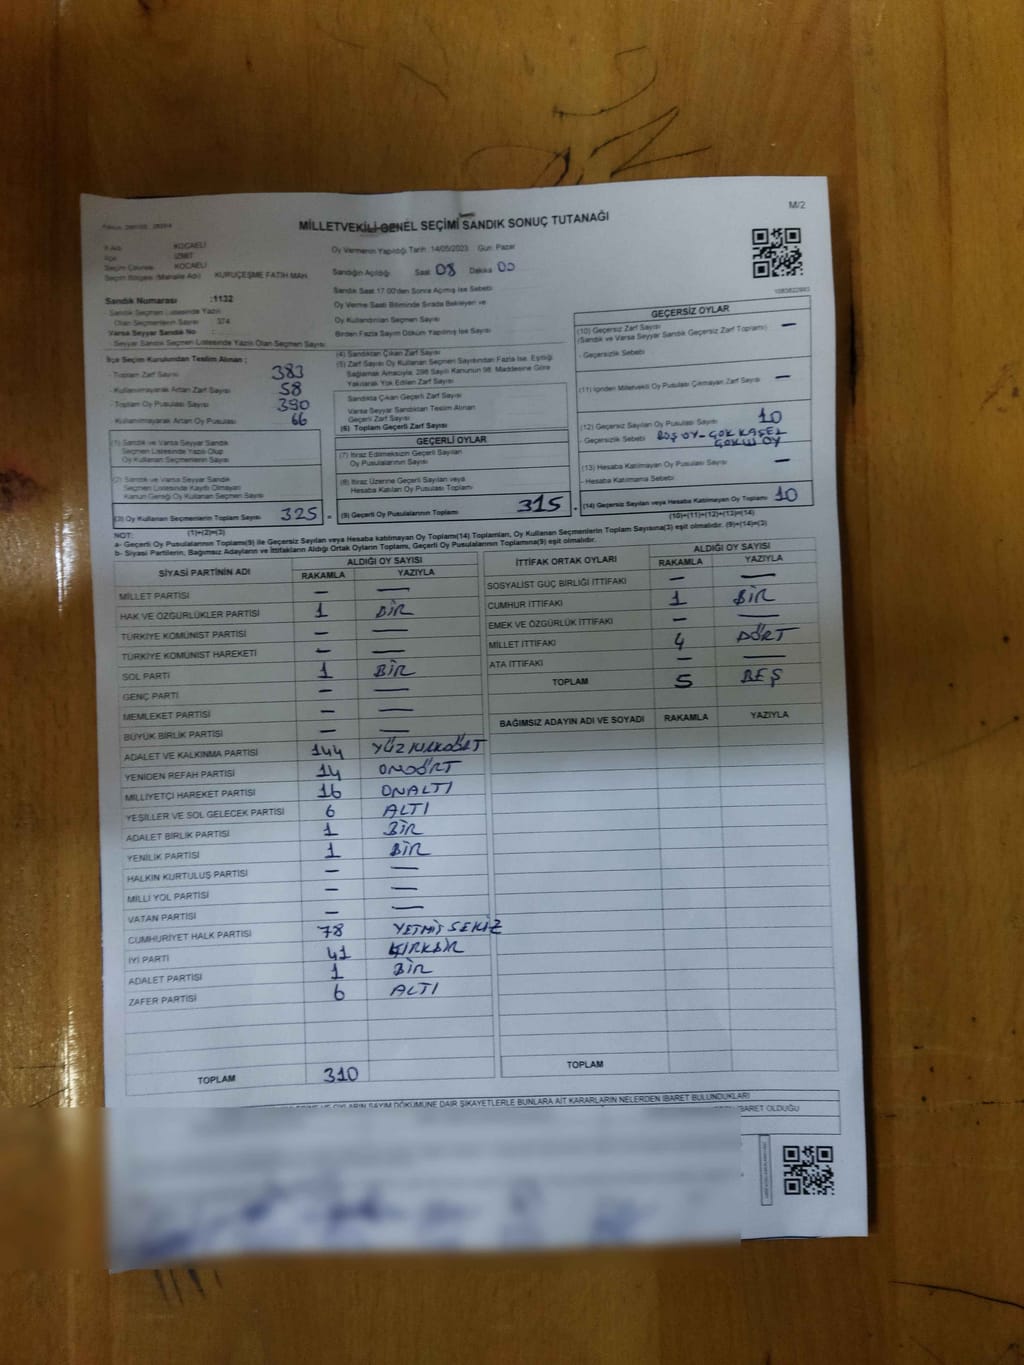 M/2
MİLLETVEKİLİ GENEL SEÇİMİ SANDIK SONUÇ TUTANAĞI
İli KOCAELİ
İlçe İZMİT
Seçim Çevresi KOCAELİ
Seçim Bölgesi (Mahalle Adı) KURUÇEŞME FATİH MAH
Sandık Numarası :1132
Sandık Seçmen Listesinde Yazılı
Olan Seçmenlerin Sayısı 374
Varsa Seyyar Sandık No :
Seyyar Sandık Seçmen Listesinde Yazılı Olan Seçmen Sayısı
Oy Vermenin Yapıldığı Tarih :14/05/2023 Gün: Pazar
Sandığın Açıldığı Saat 08 Dakika 00
Sandık Saat 17.00'den Sonra Açılmış İse Sebebi
Oy Verme Saati Bitiminde Sırada Bekleyen ve
Oy Kullandırılan Seçmen Sayısı
Birden Fazla Sayım Döküm Yapılmış İse Sayısı
İlçe Seçim Kurulundan Teslim Alınan ;
- Toplam Zarf Sayısı 383
- Kullanılmayarak Artan Zarf Sayısı 58
- Toplam Oy Pusulası Sayısı 390
- Kullanılmayarak Artan Oy Pusulası 66
(1) Sandık ve Varsa Seyyar Sandık
Seçmen Listesinde Yazılı Olup
Oy Kullanan Seçmenlerin Sayısı
(2) Sandık ve Varsa Seyyar Sandık
Seçmen Listesinde Kayıtlı Olmayan
Kanun Gereği Oy Kullanan Seçmen Sayısı
(3) Oy Kullanan Seçmenlerin Toplam Sayısı 325
(1)+(2)=(3)
(4) Sandıktan Çıkan Zarf Sayısı
(5) Zarf Sayısı Oy Kullanan Seçmen Sayısından Fazla İse, Eşitliği
Sağlamak Amacıyla, 298 Sayılı Kanunun 98. Maddesine Göre
Yakılarak Yok Edilen Zarf Sayısı
Sandıkta Çıkan Geçerli Zarf Sayısı
Varsa Seyyar Sandıktan Teslim Alınan
Geçerli Zarf Sayısı
(6) Toplam Geçerli Zarf Sayısı
GEÇERLİ OYLAR
(7) İtiraz Edilmeksizin Geçerli Sayılan
Oy Pusulalarının Sayısı
(8) İtiraz Üzerine Geçerli Sayılan veya
Hesaba Katılan Oy Pusulası Toplamı
(9) Geçerli Oy Pusulalarının Toplamı 315
GEÇERSİZ OYLAR
(10) Geçersiz Zarf Sayısı —
(Sandık ve Varsa Seyyar Sandık Geçersiz Zarf Toplamı)
- Geçersizlik Sebebi
(11) İçinden Milletvekili Oy Pusulası Çıkmayan Zarf Sayısı —
(12) Geçersiz Sayılan Oy Pusulası Sayısı 10
- Geçersizlik Sebebi BOŞ OY-ÇOK KAŞEL
(13) Hesaba Katılmayan Oy Pusulası Sayısı —
- Hesaba Katılmama Sebebi
(14) Geçersiz Sayılan veya Hesaba Katılmayan Oy Toplamı 10
(10)+(11)+(12)+(13)=(14)
NOT:
a- Geçerli Oy Pusulalarının Toplamı(9) ile Geçersiz Sayılan veya Hesaba katılmayan Oy Toplamı(14) Toplamları, Oy Kullanan Seçmenlerin Toplam Sayısına(3) eşit olmalıdır. (9)+(14)=(3)
b- Siyasi Partilerin, Bağımsız Adayların ve İttifakların Aldığı Ortak Oyların Toplamı, Geçerli Oy Pusulalarının Toplamına(9) eşit olmalıdır.
SİYASİ PARTİNİN ADI ALDIĞI OY SAYISI
RAKAMLA YAZIYLA
MİLLET PARTİSİ — —
HAK VE ÖZGÜRLÜKLER PARTİSİ 1 BİR
TÜRKİYE KOMÜNİST PARTİSİ — —
TÜRKİYE KOMÜNİST HAREKETİ — —
SOL PARTİ 1 BİR
GENÇ PARTİ — —
MEMLEKET PARTİSİ — —
BÜYÜK BİRLİK PARTİSİ — —
ADALET VE KALKINMA PARTİSİ 144 YÜZKIRKDÖRT
YENİDEN REFAH PARTİSİ 14 ONDÖRT
MİLLİYETÇİ HAREKET PARTİSİ 16 ONALTI
YEŞİLLER VE SOL GELECEK PARTİSİ 6 ALTI
ADALET BİRLİK PARTİSİ 1 BİR
YENİLİK PARTİSİ 1 BİR
HALKIN KURTULUŞ PARTİSİ — —
MİLLİ YOL PARTİSİ — —
VATAN PARTİSİ — —
CUMHURİYET HALK PARTİSİ 78 YETMİŞ SEKİZ
İYİ PARTİ 41 KIRKBİR
ADALET PARTİSİ 1 BİR
ZAFER PARTİSİ 6 ALTI
TOPLAM 310
İTTİFAK ORTAK OYLARI ALDIĞI OY SAYISI
RAKAMLA YAZIYLA
SOSYALİST GÜÇ BİRLİĞİ İTTİFAKI — —
CUMHUR İTTİFAKI 1 BİR
EMEK VE ÖZGÜRLÜK İTTİFAKI — —
MİLLET İTTİFAKI 4 DÖRT
ATA İTTİFAKI — —
TOPLAM 5 BEŞ
BAĞIMSIZ ADAYIN ADI VE SOYADI RAKAMLA YAZIYLA
TOPLAM
OYLARIN SAYIM DÖKÜMÜNE DAİR ŞİKAYETLERLE BUNLARA AİT KARARLARIN NELERDEN İBARET BULUNDUKLARI
İBARET OLDUĞU